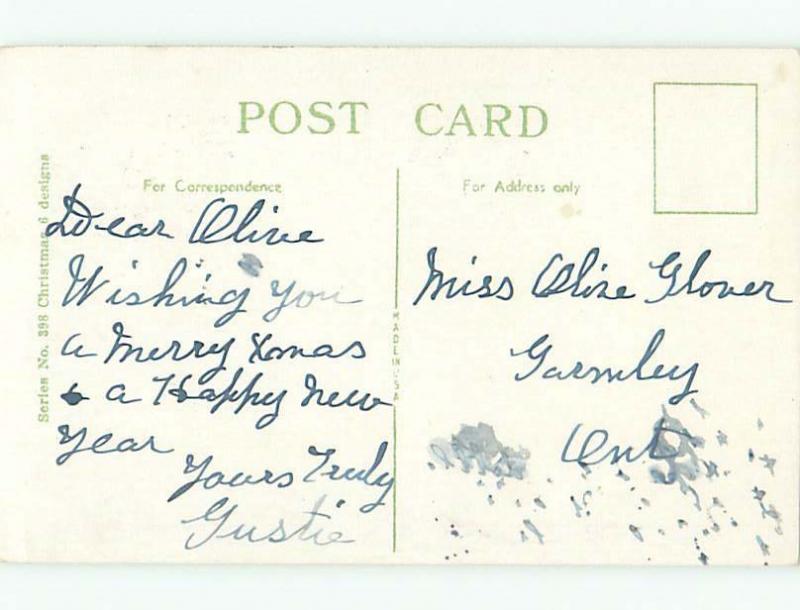 POST CARD
For Correspondence
For Address only
Series No. 398 Christmas 6 designs
MADE IN USA
Dear Olive
Wishing you
a Merry Xmas
& a Happy New
Year
Yours Truly
Gustie
Miss Olive Glover
Gormley
Ont